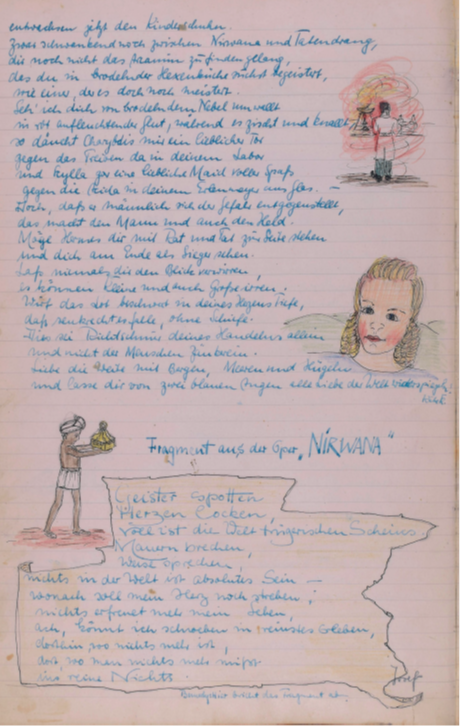 entwachsen jetzt den Kinderschuhen.
Zwar schwankend noch zwischen Nirwana und Tatendrang,
die noch nicht das zu finden gelang,
das du in brodelnder Hexenküche suchst begeistert,
wie einer, der es doch noch meistert.
Seh' ich dich von brodelndem Nebel umwallt
in rot aufleuchtender Glut, während es zischt und
so däucht Charybdis mir ein lieblicher Tor
gegen das Treiben da in deinem Labor
und Skylla gar eine liebliche Maid voller Spaß
gegen die in deinem Erlenmeyer aus Glas. —
daß er männlich sich der Gefahr entgegenstellt,
das macht den Mann und auch den Held.
Möge dir mit Rat und Tat zur Seite stehen
und dich am Ende als Sieger sehen.
Laß niemals dir den Blick verwirren,
es können Kleine und auch Große irren.
Wirf das Lot in deines Herzens Tiefe,
daß senkrecht es falle, ohne Schiefe.
Dies sei Richtschnur deines Handelns allein
und nicht der Menschen
Liebe die Weite mit Bergen, Meeren und Hügeln
und lasse dir von zwei blauen Augen alle Liebe der Welt wiederspiegeln!
Fragment aus der Oper „NIRWANA“
Geister spotten
Herzen locken,
voll ist die Welt trügerischen Scheins.
Mauern brechen,
Weise sprechen,
nichts in der Welt ist absolutes Sein —
wonach soll mein Herz noch streben;
nichts erfreuet mehr mein Leben,
ach, könnt ich schweben in reinstes
dorthin wo nichts mehr ist,
dort wo man nichts mehr
ins reine Nichts.
Josef
das Fragment ab.